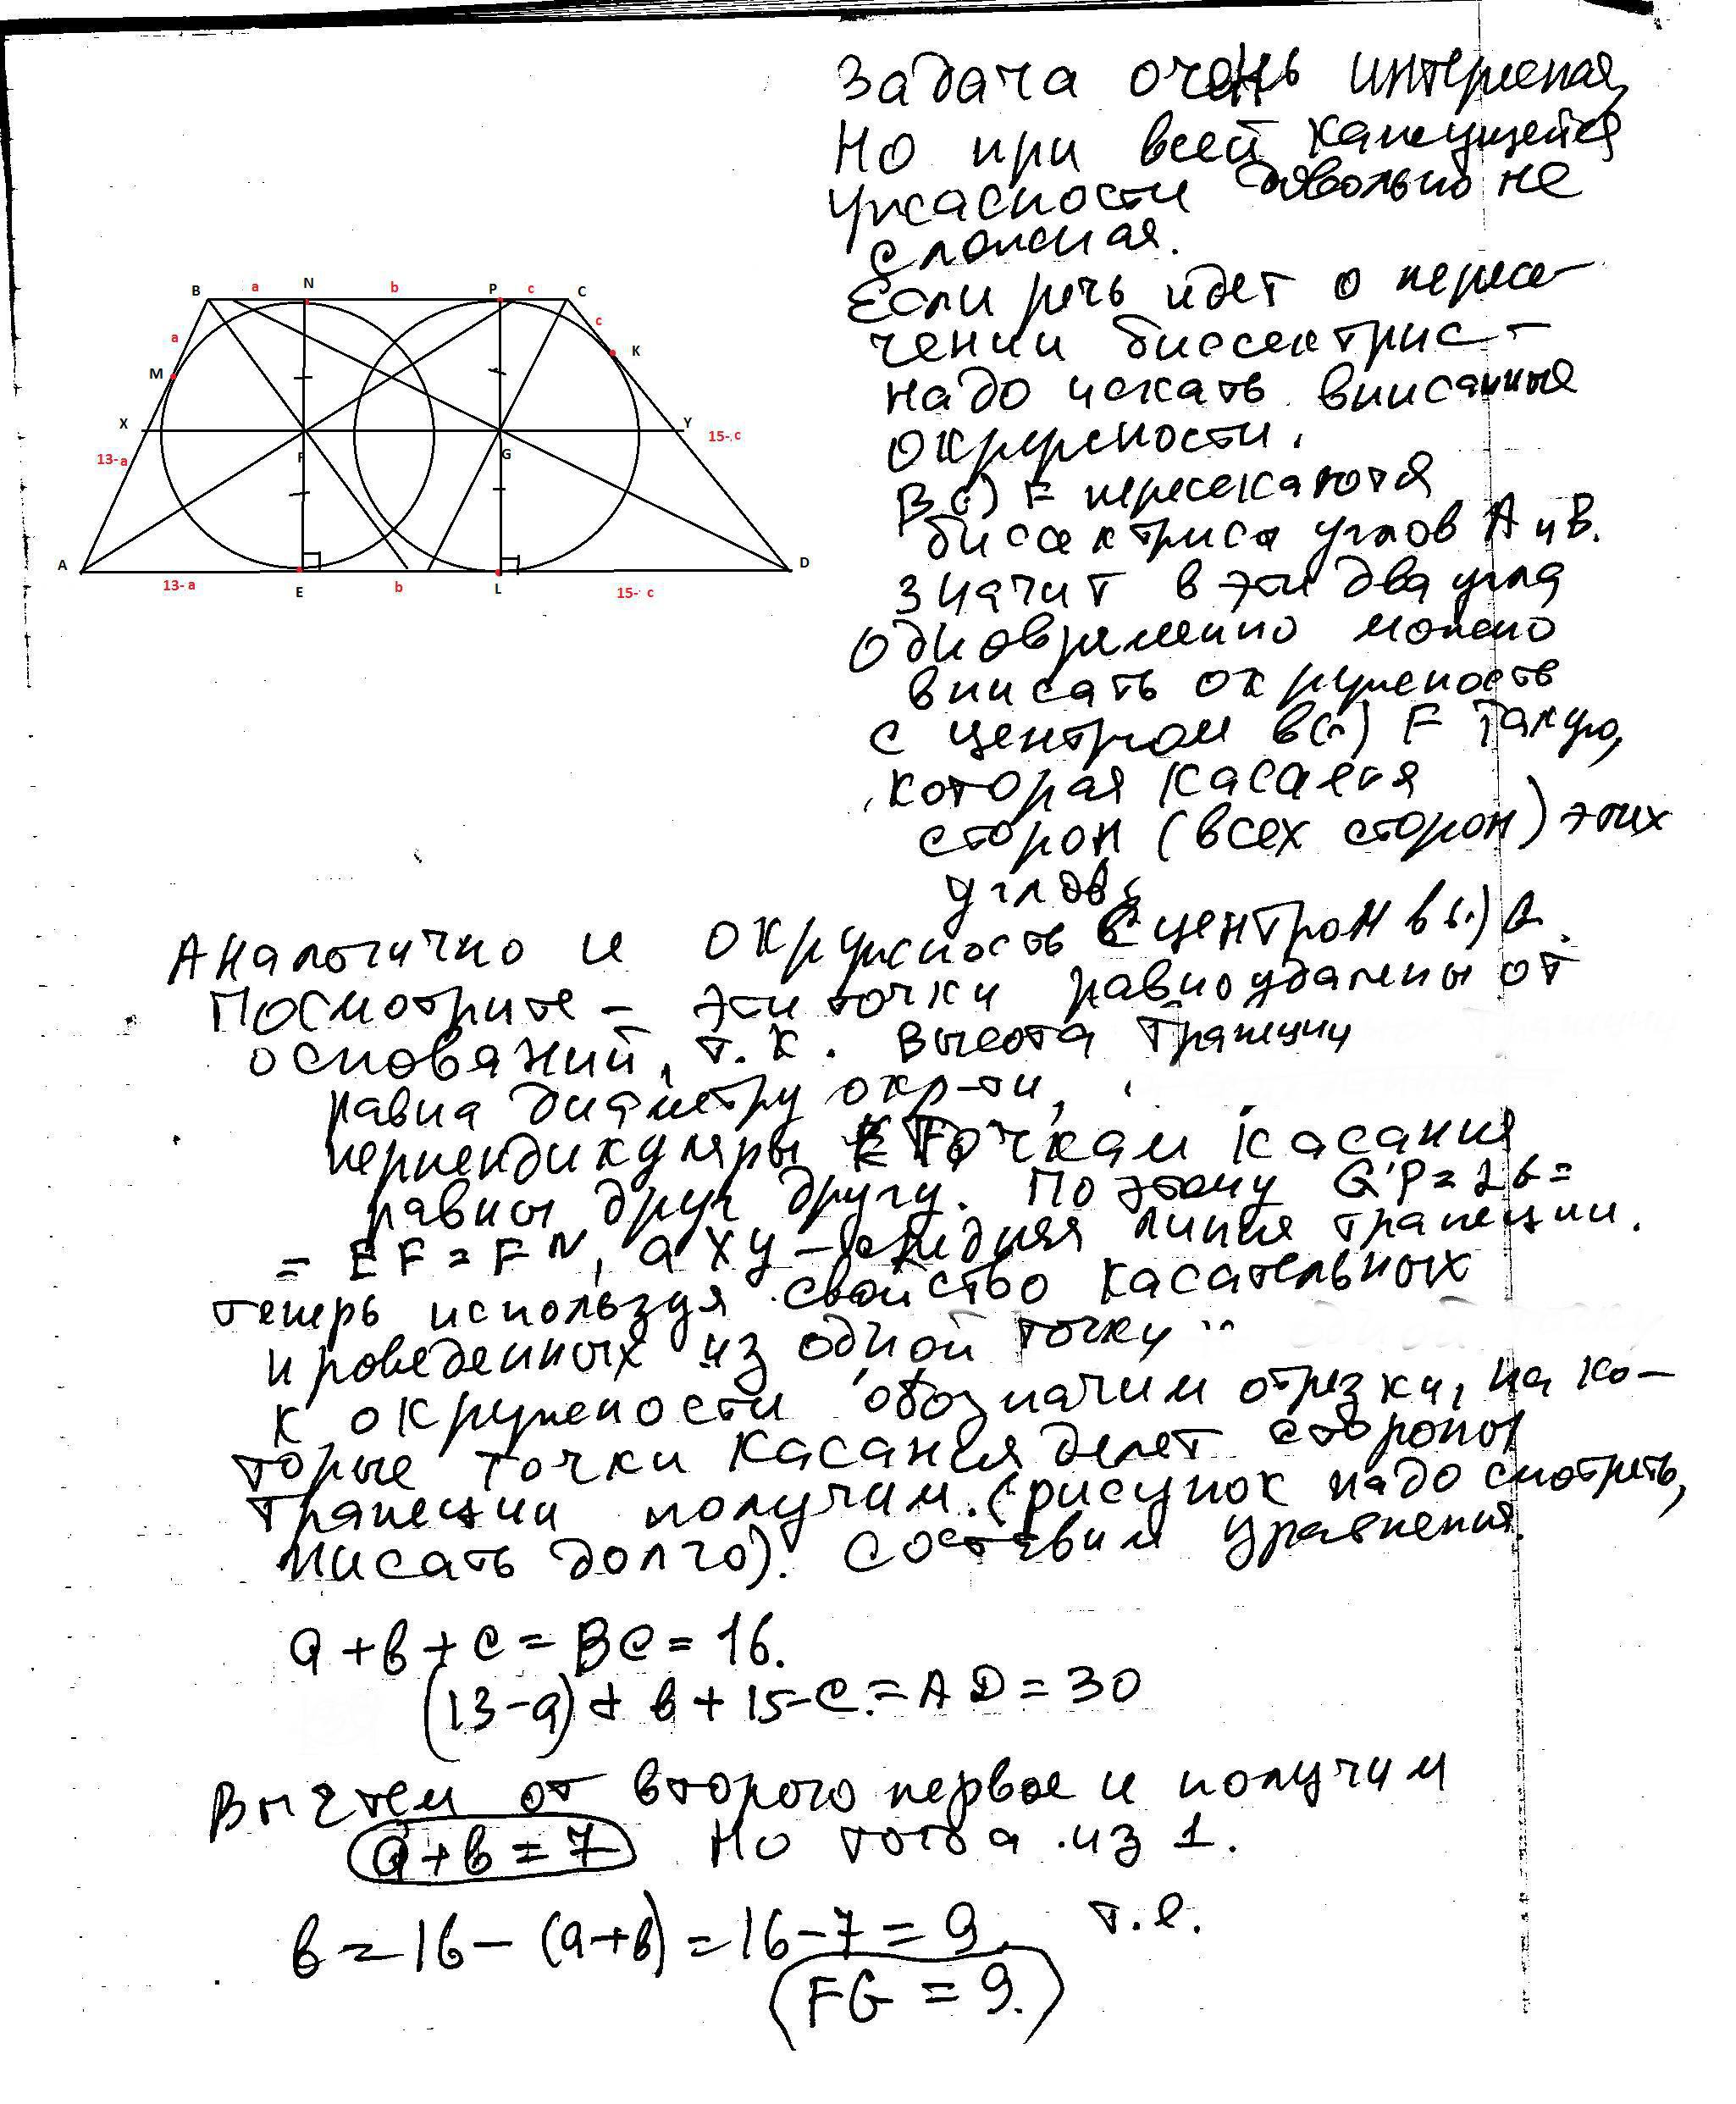 B a N b P c C
a c K
M
X Y
15-c
13-a F G
A D
13-a E b L 15-c
Задача очень интересная,
Но при всей кажущейся
ужасности довольно не
сложная.
Если речь идет о пересе-
чении биссектрис -
надо искать вписанные
окружности.
В (.) F пересекаются
биссектрисы углов А и В.
значит в эти два угла
одновременно можно
вписать окружность
с центром в (.) F такую,
которая касается
сторон (всех сторон) этих
углов.
Аналогично и окружность с центром в (.) G.
Посмотрите - эти точки равноудалены от
оснований, т.к. высота трапеции
равна диаметру окр-ти,
перпендикуляры к точкам касания
равны друг другу. Поэтому GP = LG =
= EF = FN, а XY - средняя линия трапеции.
теперь используя свойство касательных
проведенных из одной точки
к окружности обозначим отрезки, на ко-
торые точки касания делят стороны
трапеции получим. (рисунок надо смотреть,
писать долго). Составим уравнения.
a + b + c = BC = 16.
(13-a) + b + 15-c = AD = 30
Вычтем от второго первое и получим
a + b = 7 Но тогда из 1.
b = 16 - (a+b) = 16-7 = 9. т.е.
FG = 9.